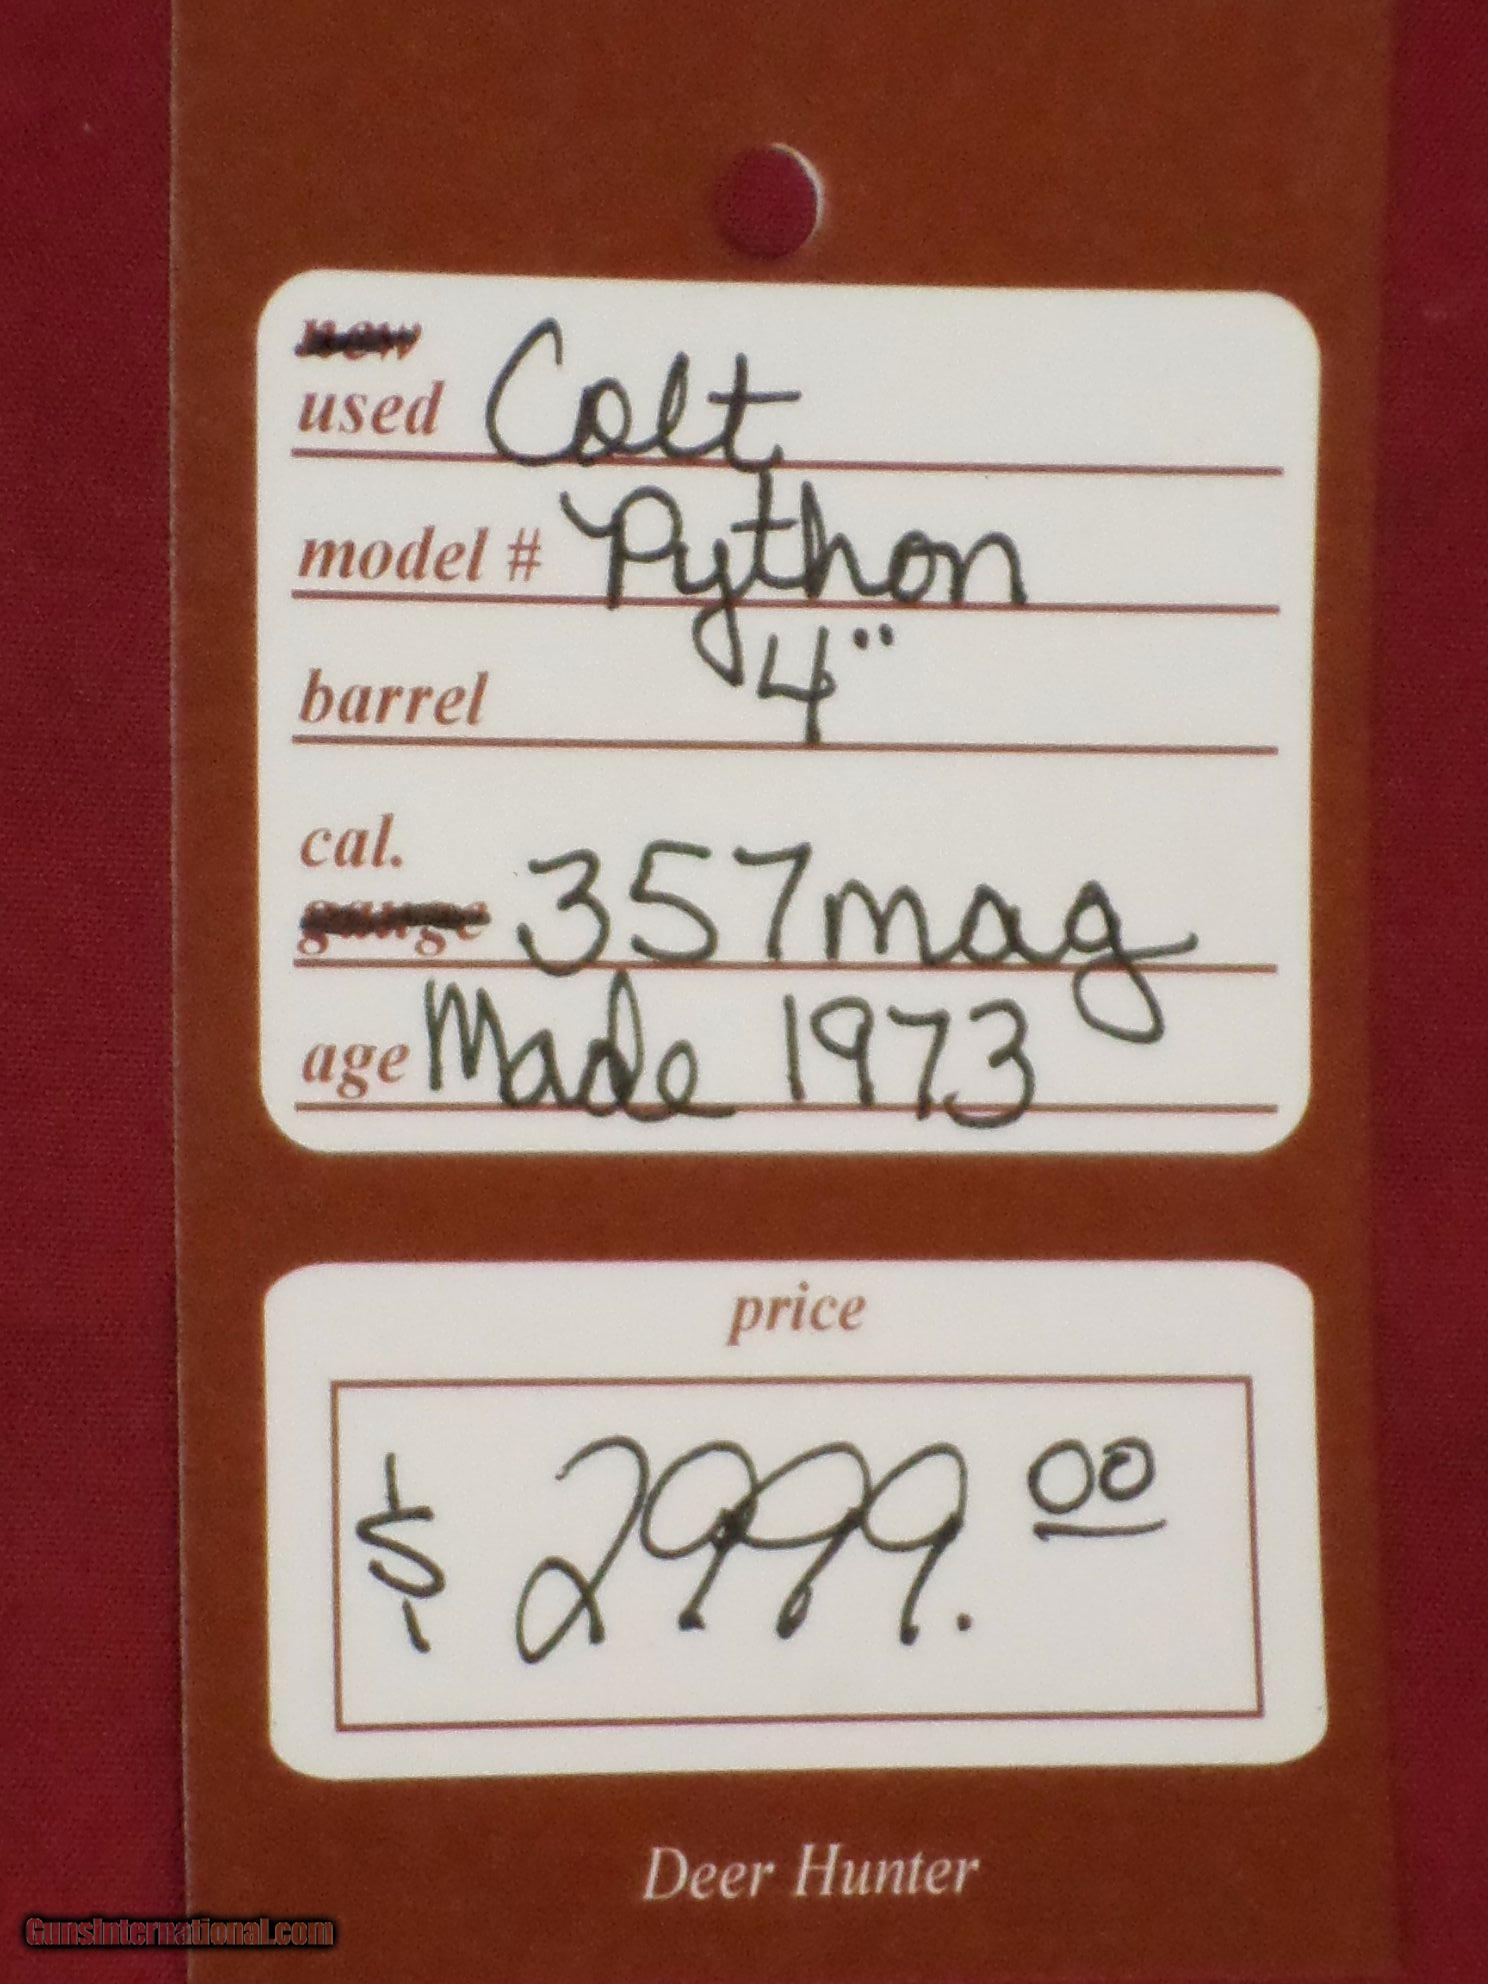 new
used Colt
model # Python
barrel 4"
cal.
gauge 357 mag
age Made 1973
price
$ 2999.00
Deer Hunter
GunsInternational.com